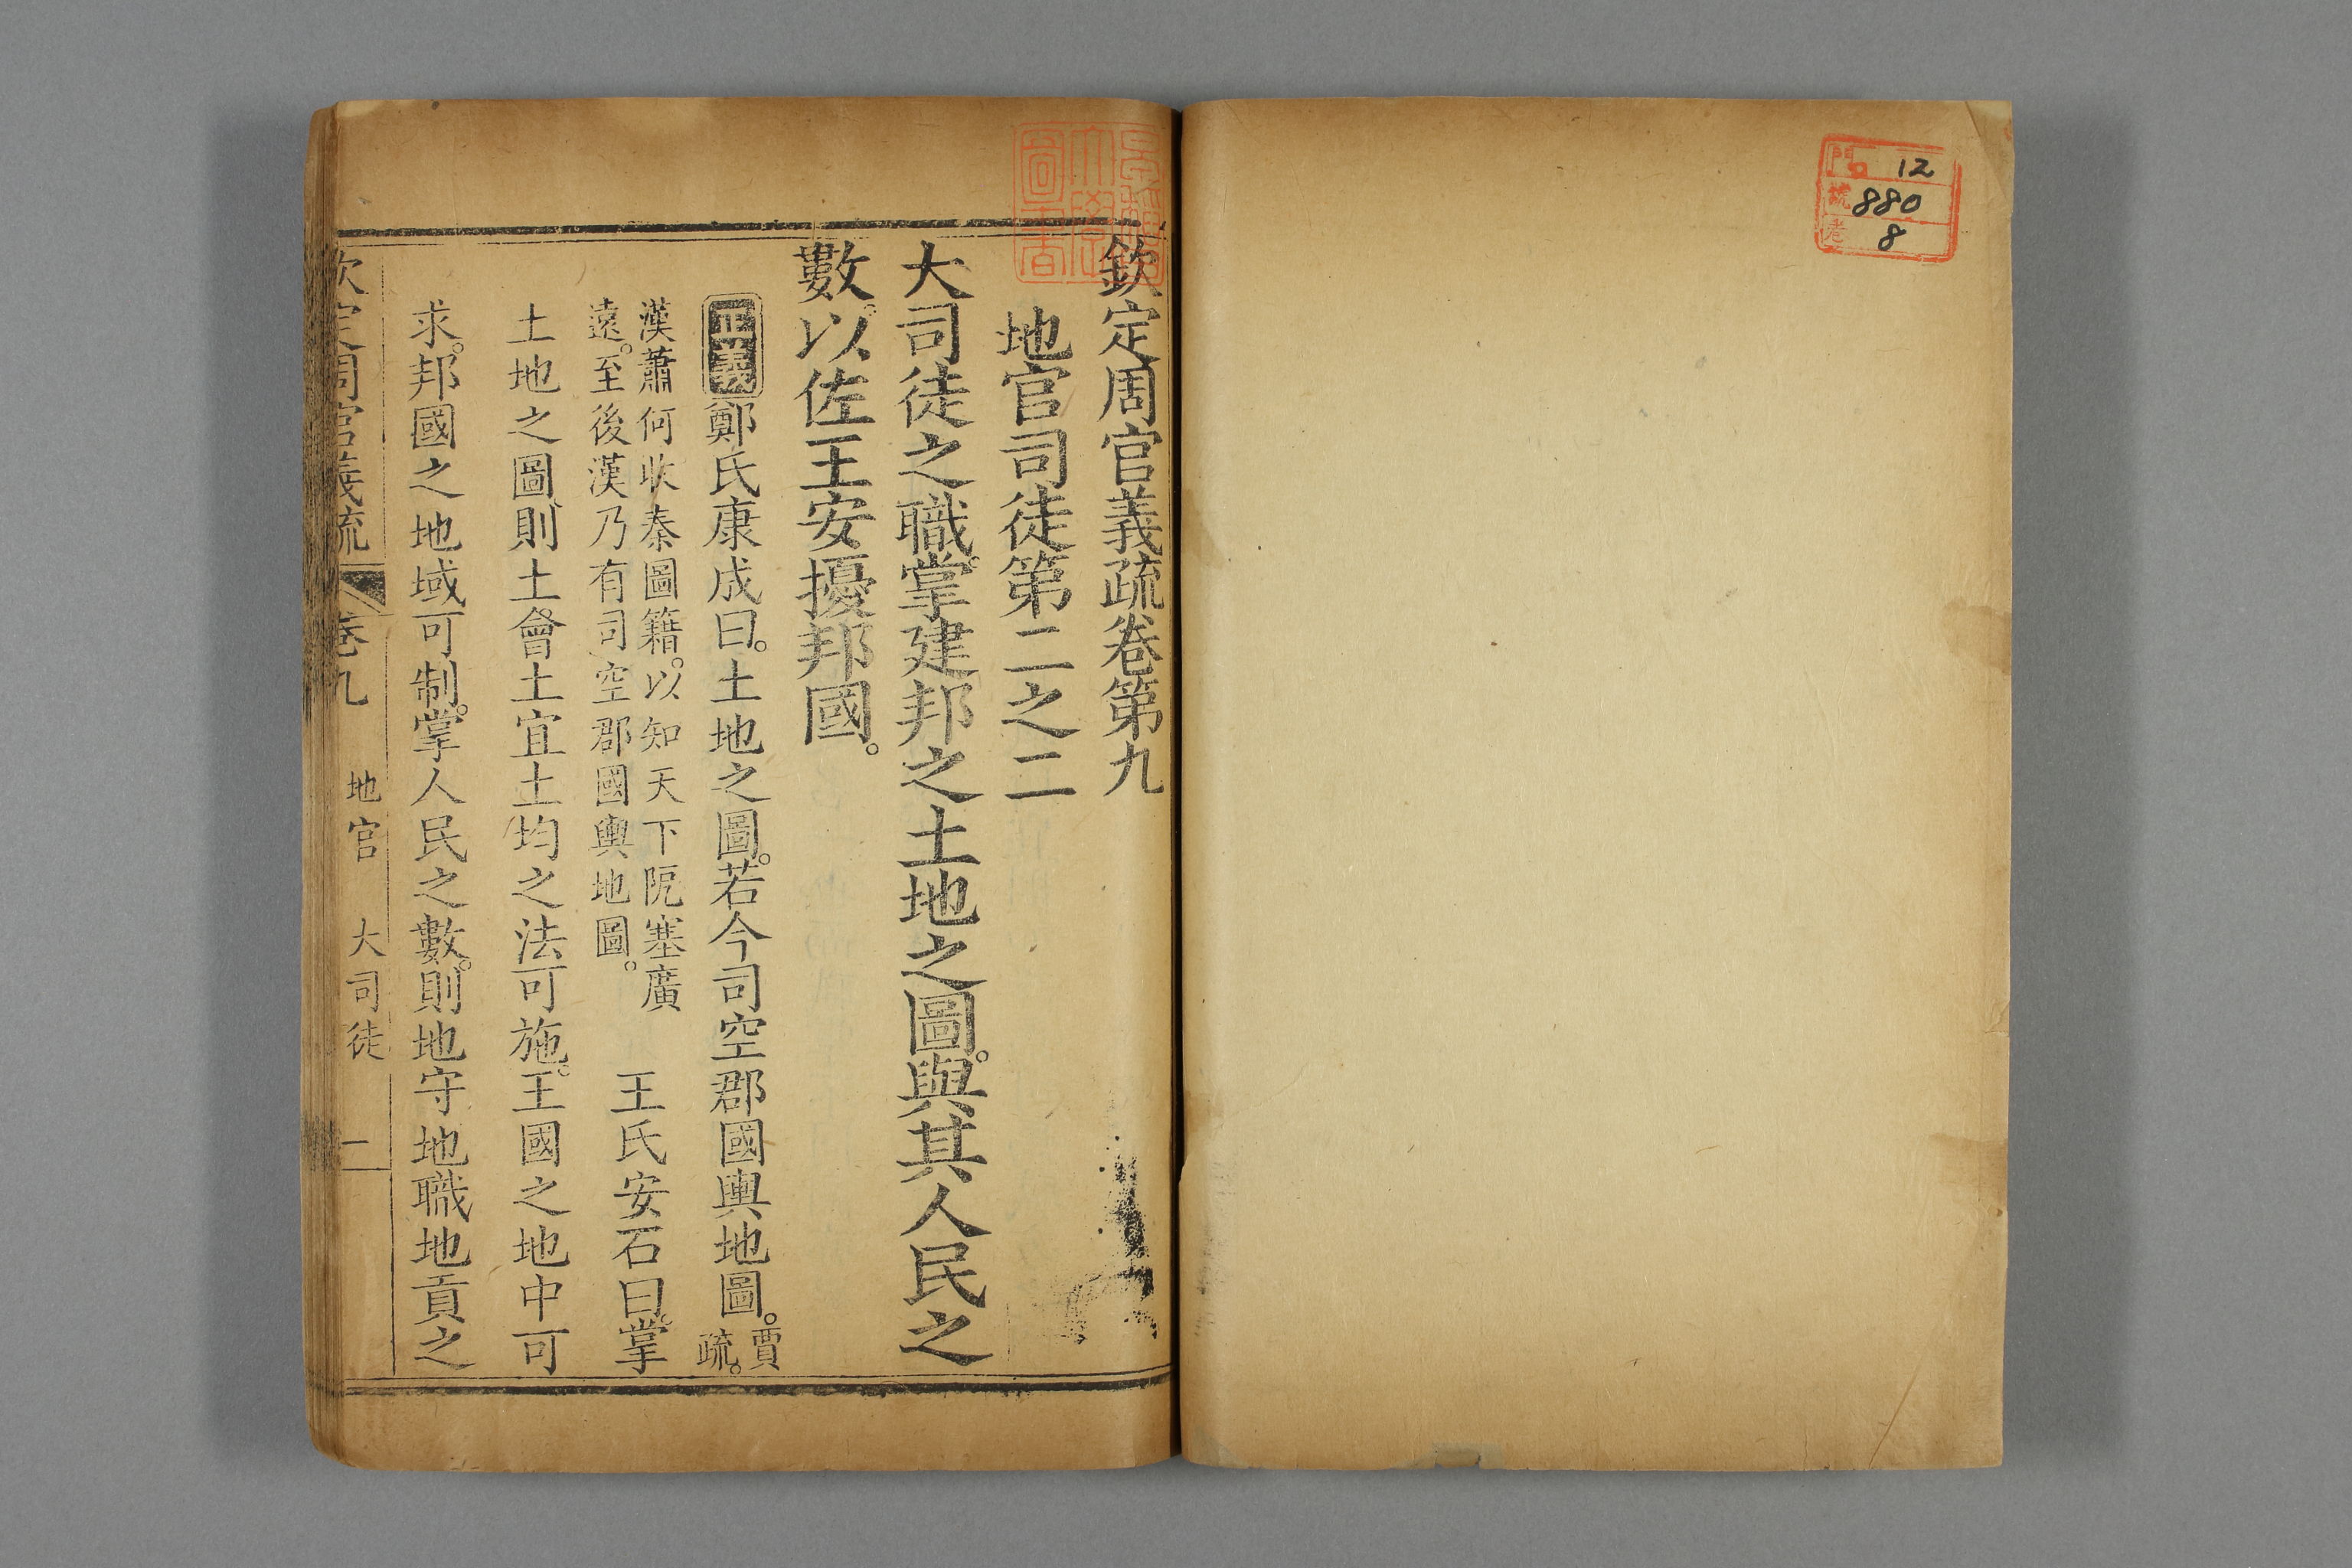 門 12
號 880
卷 8
欽定周官義疏卷第九
地官司徒第二之二
大司徒之職。掌建邦之土地之圖。與其人民之
數。以佐王安擾邦國。
正義鄭氏康成曰。土地之圖。若今司空郡國輿地圖。賈
疏。
漢蕭何收秦圖籍。以知天下阨塞廣
遠。至後漢乃有司空郡國輿地圖。
王氏安石曰。掌
土地之圖、則土會土宜土均之法可施。王國之地中可
求。邦國之地域可制。掌人民之數。則地守地職地貢之
欽定周官義疏 卷九 地官 大司徒 一
早稻田大學圖書